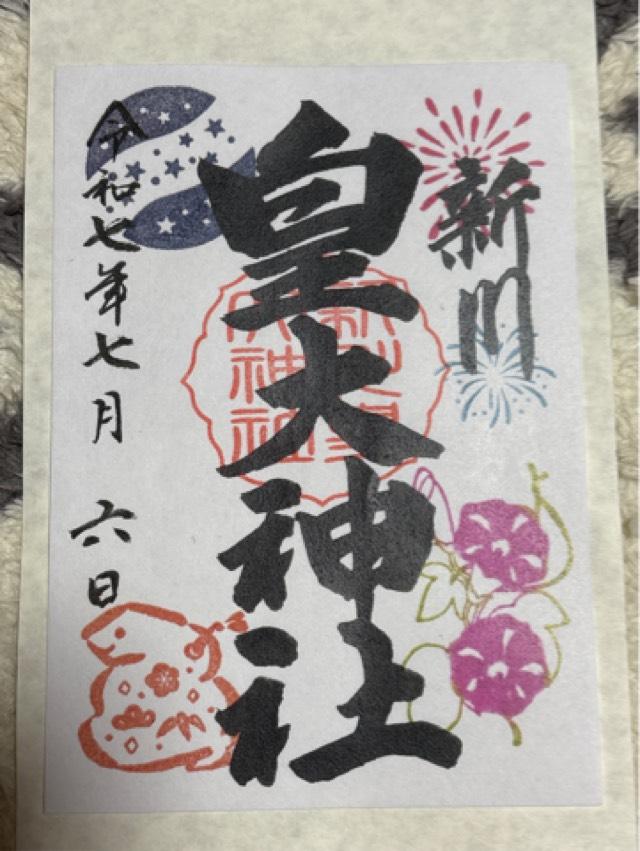 新川
皇大神社
新川皇
大神社
令和七年七月 六日